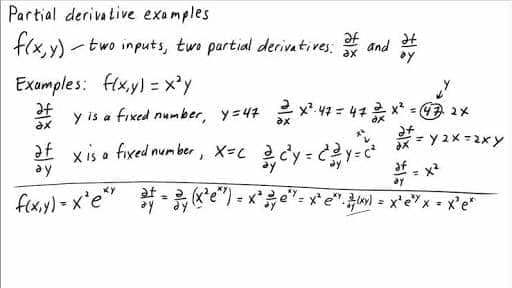 Partial derivative examples
f(x,y) – two inputs, two partial derivatives: ∂f/∂x and ∂f/∂y
Examples: f(x,y) = x²y
y
∂f/∂x y is a fixed number, y=47 ∂/∂x x²·47 = 47 ∂/∂x x² = 47·2x
∂f/∂x = y2x = 2xy
x²
∂f/∂y x is a fixed number, x=c ∂/∂y c²y = c² ∂/∂y y = c²
∂f/∂y = x²
f(x,y) = x²e^xy ∂f/∂y = ∂/∂y (x²e^xy) = x² ∂/∂y e^xy = x² e^xy · ∂/∂y (xy) = x²e^xy x = x³e^x